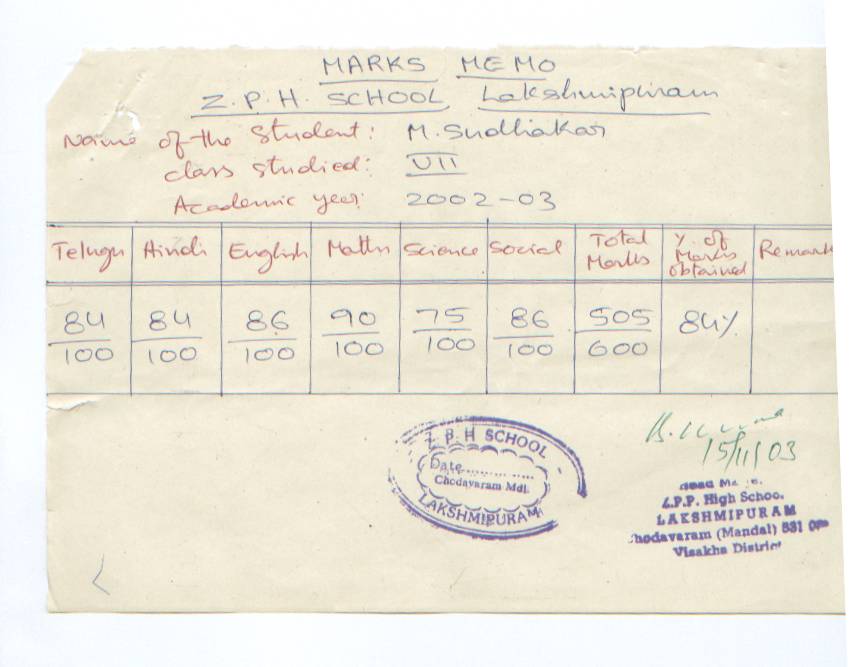 MARKS MEMO
Z.P.H. SCHOOL Lakshmipuram
Name of the Student: M. Sudhakar
class studied: VII
Academic year: 2002-03
Telugu Hindi English Maths Science Social Total Marks % of Marks obtained Remark
84/100 84/100 86/100 90/100 75/100 86/100 505/600 84%
Z P H SCHOOL
Date..............
Chodavaram Mdl.
LAKSHMIPURAM
15/11/03
Head
Z.P.P. High School
LAKSHMIPURAM
Chodavaram (Mandal) 531
Visakha District